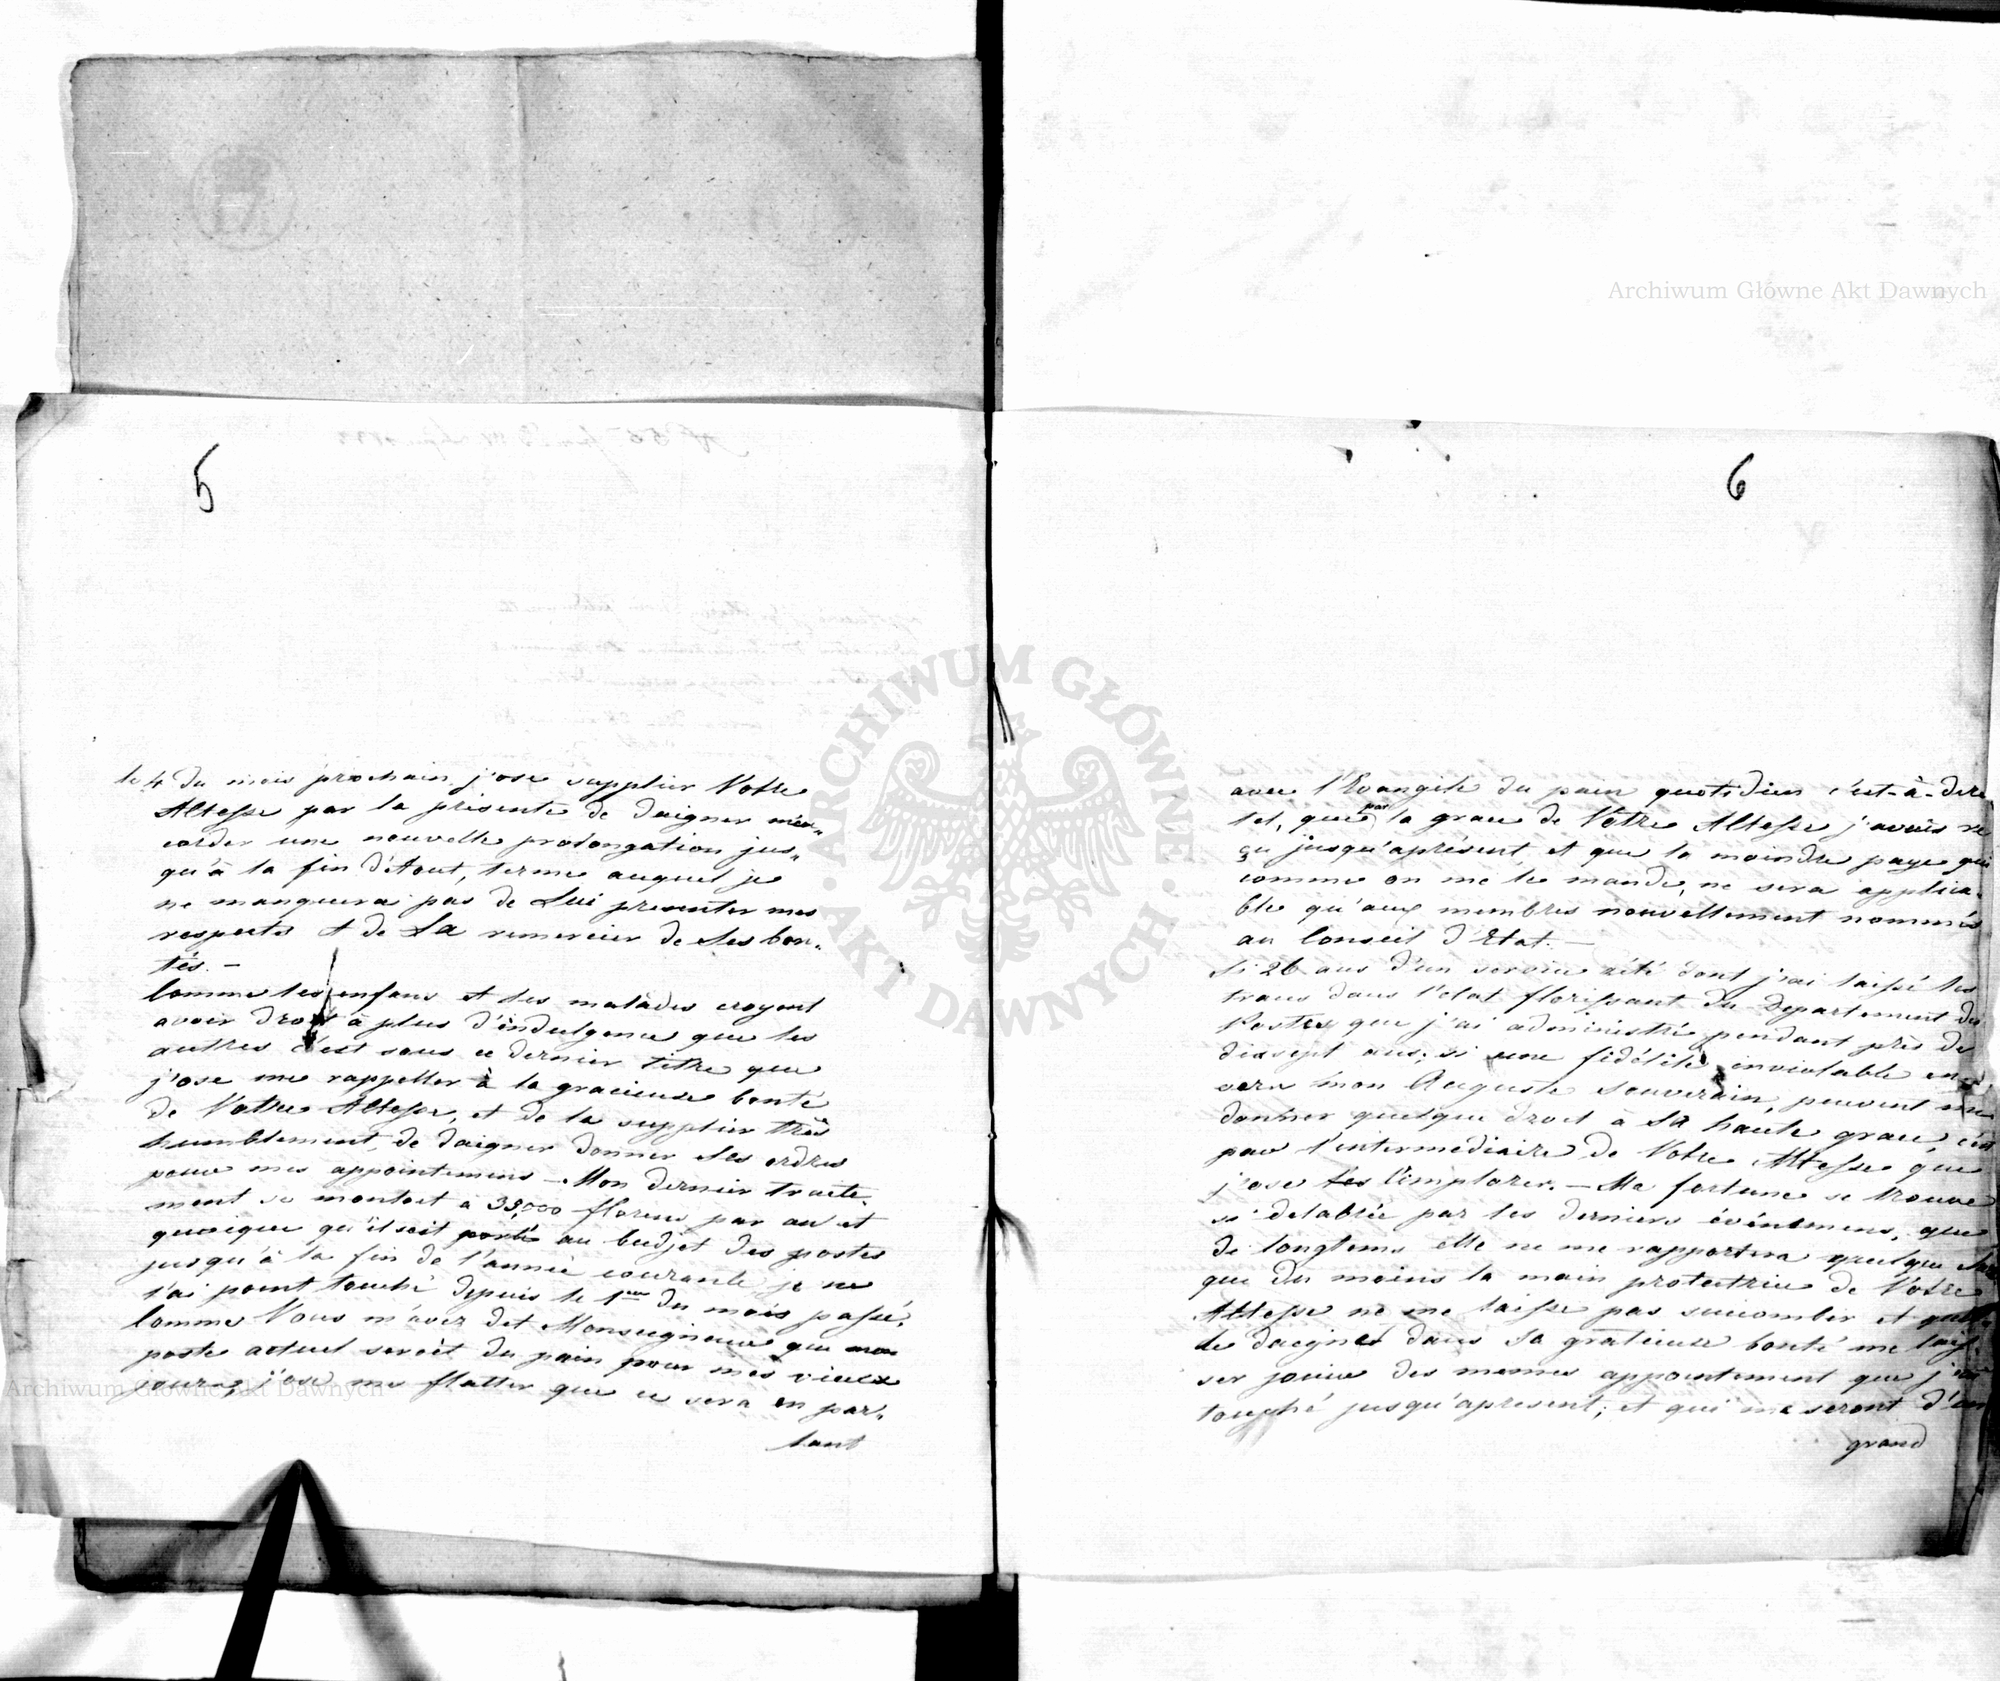 5
le 4 du mois prochain j'ose supplier Votre
Altesse par la présente de daigner m'ac„
corder une nouvelle prolongation jus„
qu'à la fin d'Aout, terme auquel je
ne manquerai pas de Lui presenter mes
respects et de La remercier de Ses bon„
tés. —
Comme les enfans et les malades croyent
avoir droit à plus d'indulgence que les
autres c'est sous ce dernier titre que
j'ose me rappeller à la gracieuse bonté
de Votre Altesse, et de la supplier très
humblement, de daigner donner Ses ordres
pour mes appointemens — Mon dernier traite„
ment se montoit à 33,000 florins par an et
quoique qu'il soit porté au budjet des postes
jusqu'à la fin de l'année courante je ne
l'ai point touché depuis le 1er du mois passé.
Comme Vous m'avez dit Monseigneur que mon
poste actuel seroit du pain pour mes vieux
jours, j'ose me flatter que ce sera en par„
lant
6
avec l'Evangile du pain quotidien c'est-à-dire
tel, que par la grace de Votre Altesse j'avois re
çu jusqu'aprésent, et que la moindre paye qui
comme on me le mande, ne sera applica„
ble qu'aux membres nouvellement nommés
au Conseil d'Etat. —
Si 26 ans d'un service zélé dont j'ai laissé les
traces dans l'etat florissant du Departement des
Postes que j'ai administré pendant près de
dixsept ans; si une fidélité inviolable en„
vers mon Auguste Souverain, peuvent me
donner quelque droit à Sa haute grace, c'est
par l'intermediaire de Votre Altesse que
j'ose l'implorer. — Ma fortune se trouve
si delabrée par les derniers événemens, que
de longtems elle ne me rapportera quelque
que du moins la main protectrice de Votre
Altesse ne me laisse pas succomber et
de daigner dans Sa gratieuse bonté me lais„
ser jouir des memes appointement que j'ai
touché jusqu'apresent; et qui me seront d'un
grand
Archiwum Główne Akt Dawnych
ARCHIWUM GŁÓWNE
AKT DAWNYCH
Archiwum Główne Akt Dawnych